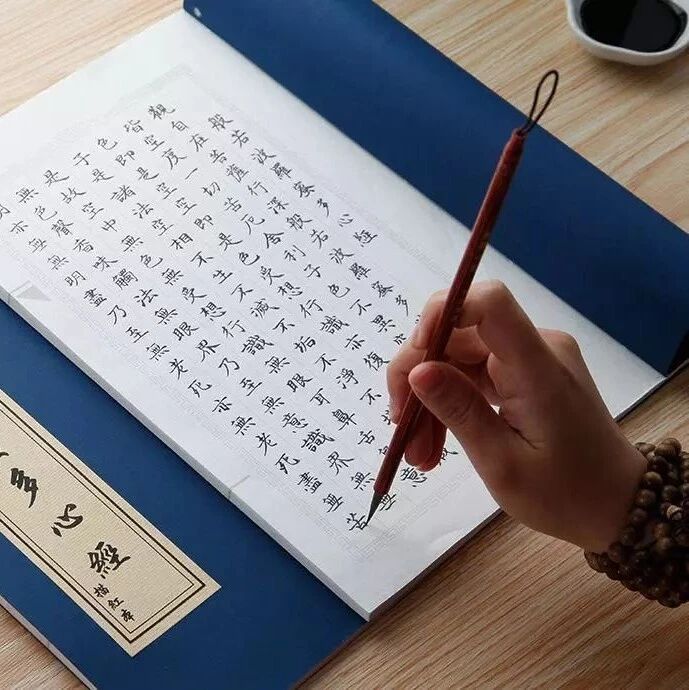 般若波羅蜜多心經
觀自在菩薩行深般若波羅蜜多
皆空度一切苦厄舍利子色不異
色即是空空即是色受想行識亦復
子是諸法空相不生不滅不垢不淨不
是故空中無色無受想行識無眼耳鼻舌意
無色聲香味觸法無眼界乃至無意識界無無
明亦無無明盡乃至無老死亦無老死盡無苦
多心經
描紅本